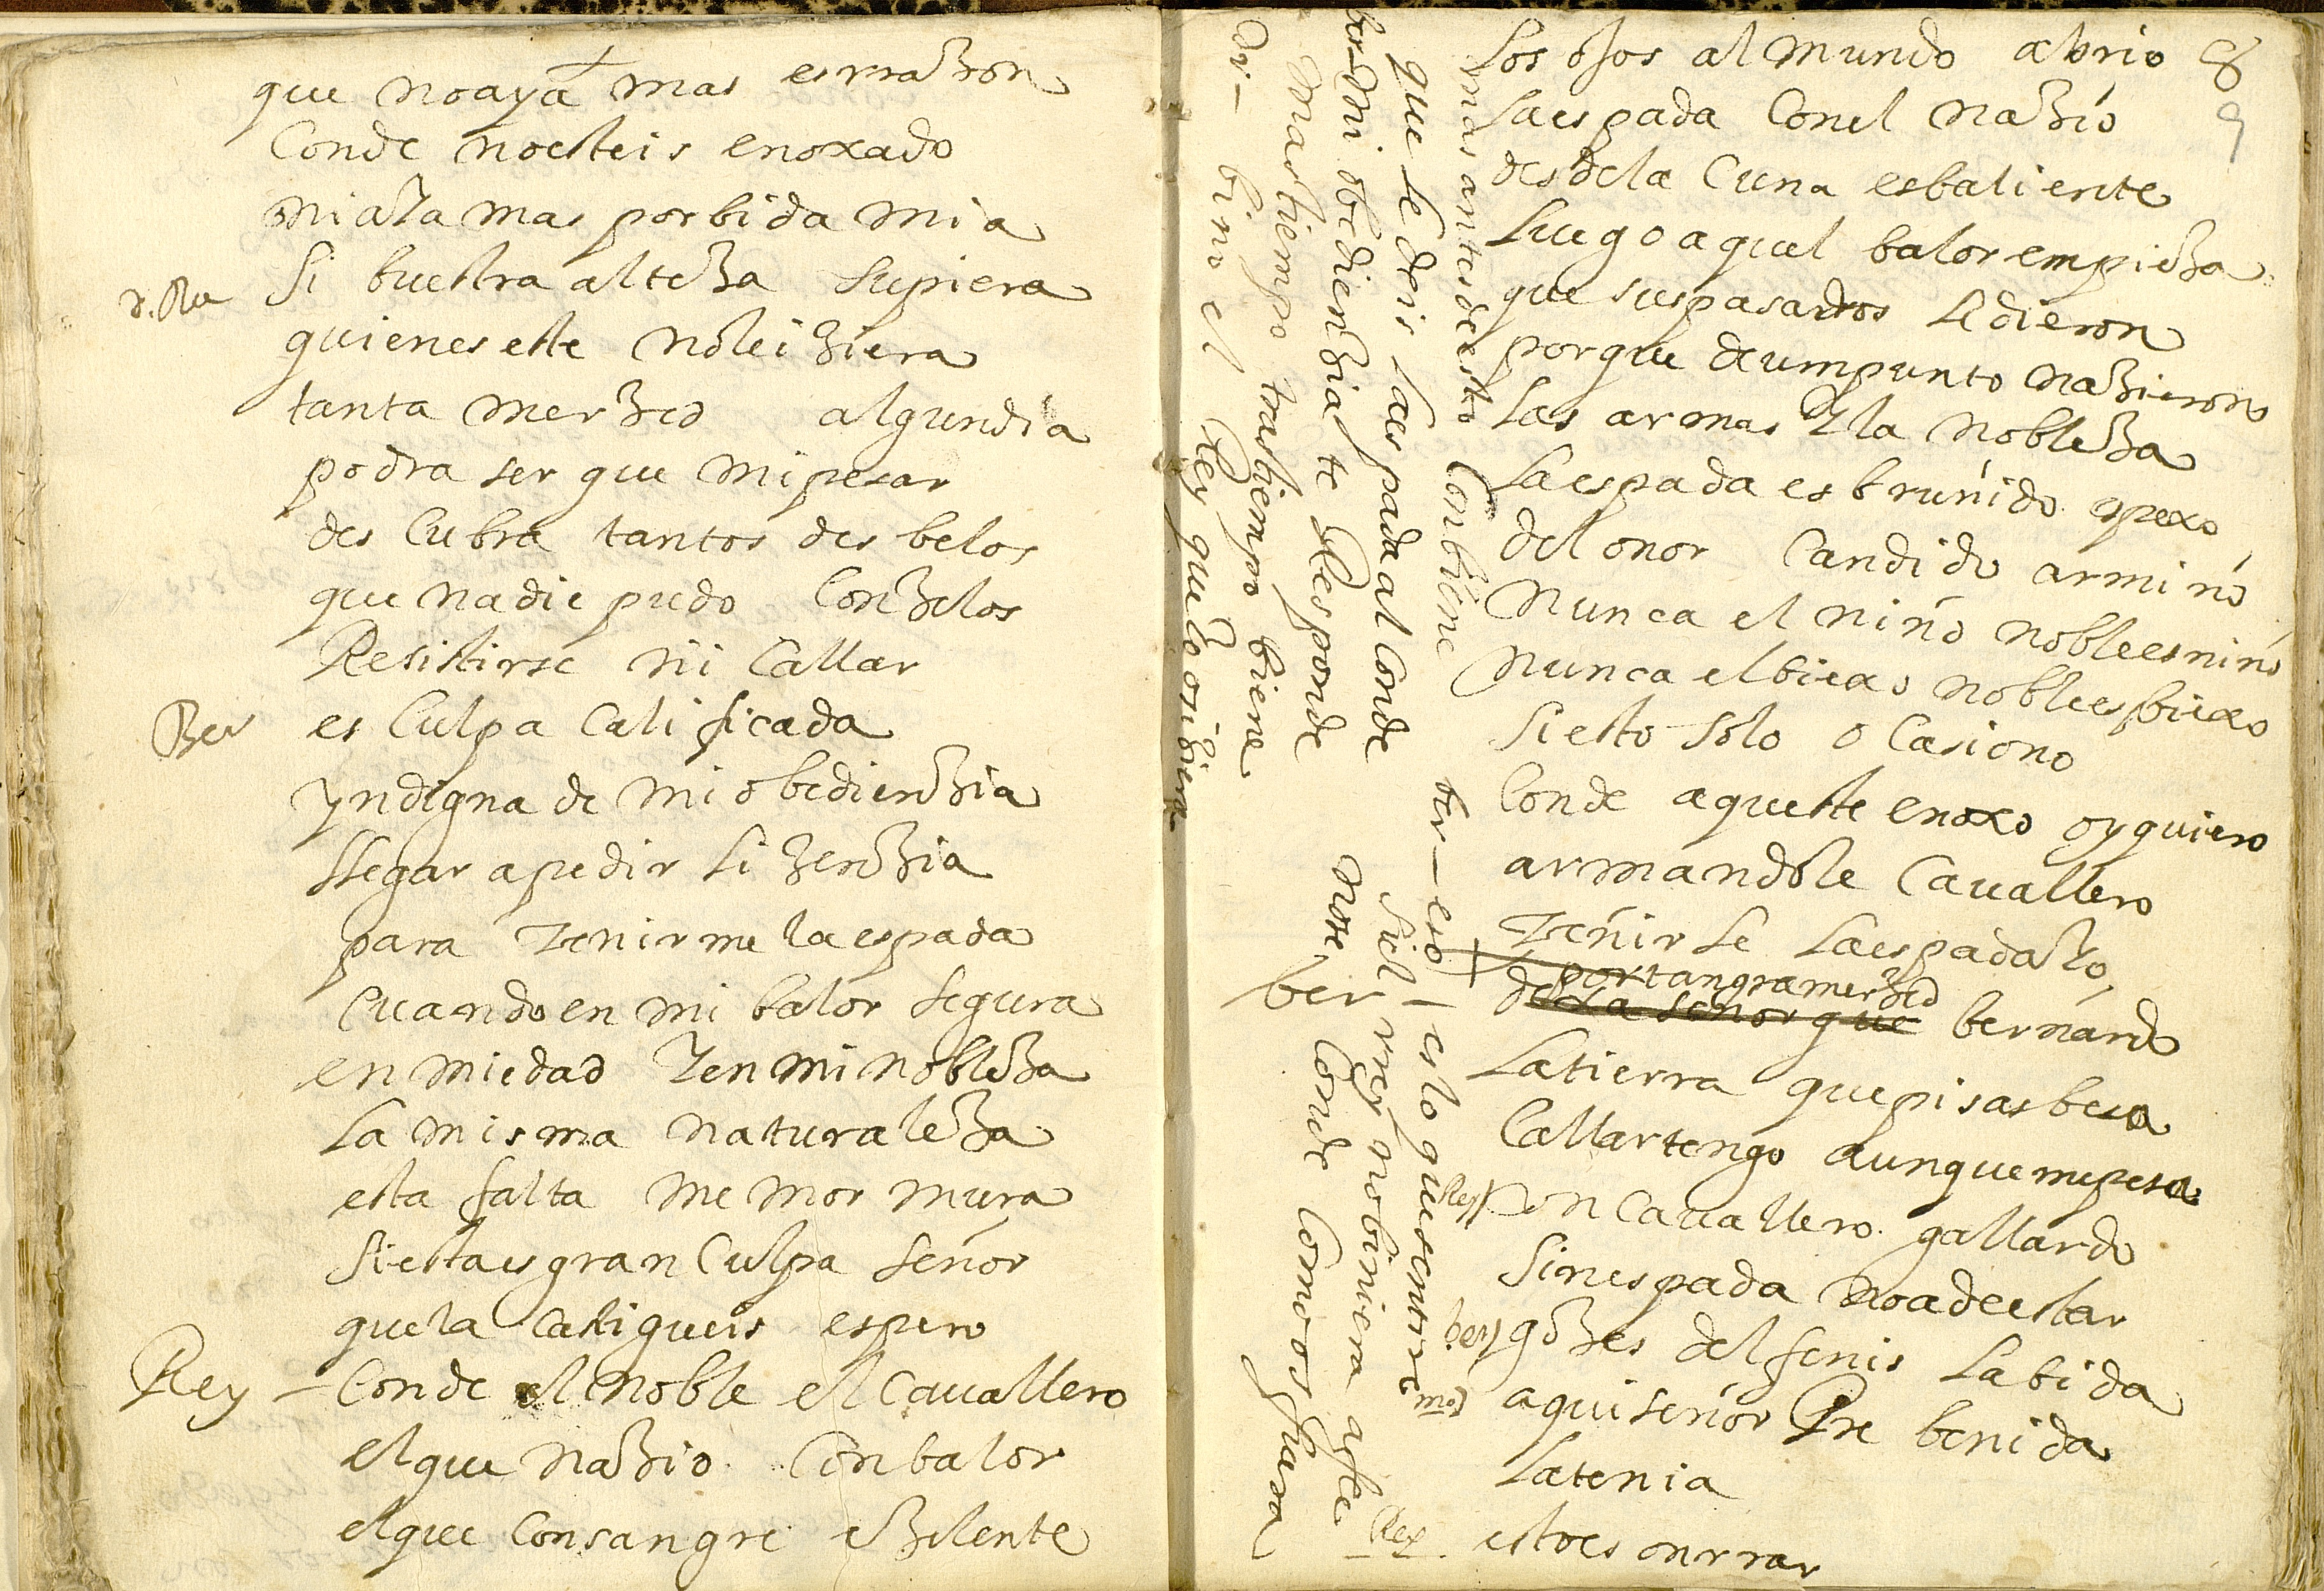 que no aya mas es rrazon
Conde no esteis enoxado
ni aya mas por bida mia
d. Ru Si buestra alteza supiera
quien es este no le iziera
tanta merzed algun dia
podra ser que mi pesar
des Cubra tantos des belos
que nadie pudo Con zelos
Resistirse ni Callar
Ber es Culpa Calificada
yndigna de mi obedienzia
llegar a pedir lizenzia
para zenirme la espada
Cuando en mi balor segura
en mi edad y en mi nobleza
la misma naturaleza
esta falta me mormura
si esta es gran Culpa señor
que la Castigueis espero
Rey – Conde el noble el Cauallero
el que nazio Con balor
el que Con sangre ezelente
los ojos al mundo abrio
la espada Con el nazio
desde la Cuna es baliente
luego aquel balor empieza
que sus pasados le dieron
porque a un punto nazieron
las armas y la nobleza
la espada es bruñido espexo
del onor Candido armiño
Nunca el niño noble es niño
nunca el biexo noble es biexo
si esto solo o Casiono
Conde aqueste enoxo oy quiero
armandole Cauallero
zeñirle la espada yo
por tan gra merzed
de la señor que bernardo
la tierra que pisas besa
Callar tengo aunque me pesa
Rey Con Cauallero gallardo
sin espada no a de estar
ber gozes del fenis la bida
aqui señor Pre benida
la tenia
Rey esto es onrrar
mas antes de esto Conbiene
que le deis la espada al Conde
ber – mi obedienzia te Responde
mas tiempo tras tiempo biene
bino el Rey que lo oniziera
ber – eso – es lo que sentire
si el rrey no biniera
ber Conde Como os
8
9